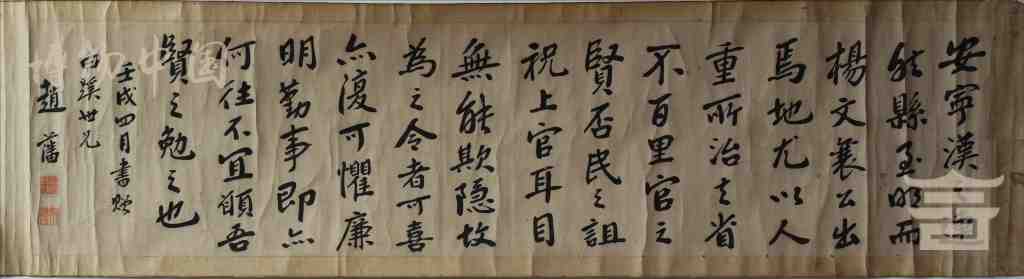 安寧漢之連
然縣至明而
楊文襄公出
焉地尤以人
重所治去省
不百里官之
賢否民之詛
祝上官耳目
無能欺隐故
為之令者可喜
亦復可懼廉
明勤事即亦
何往不宜願吾
賢之勉之也
壬戌四月書贈
蹊世兄
趙藩
博物中国